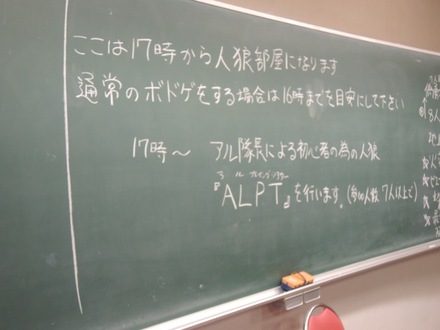 ここは17時から人狼部屋になります
通常のボドゲをする場合は16時までを目安にして下さい
17時〜 アル隊長による初心者の為の人狼
『ALPT』を行います。(参加人数 7人以上で)